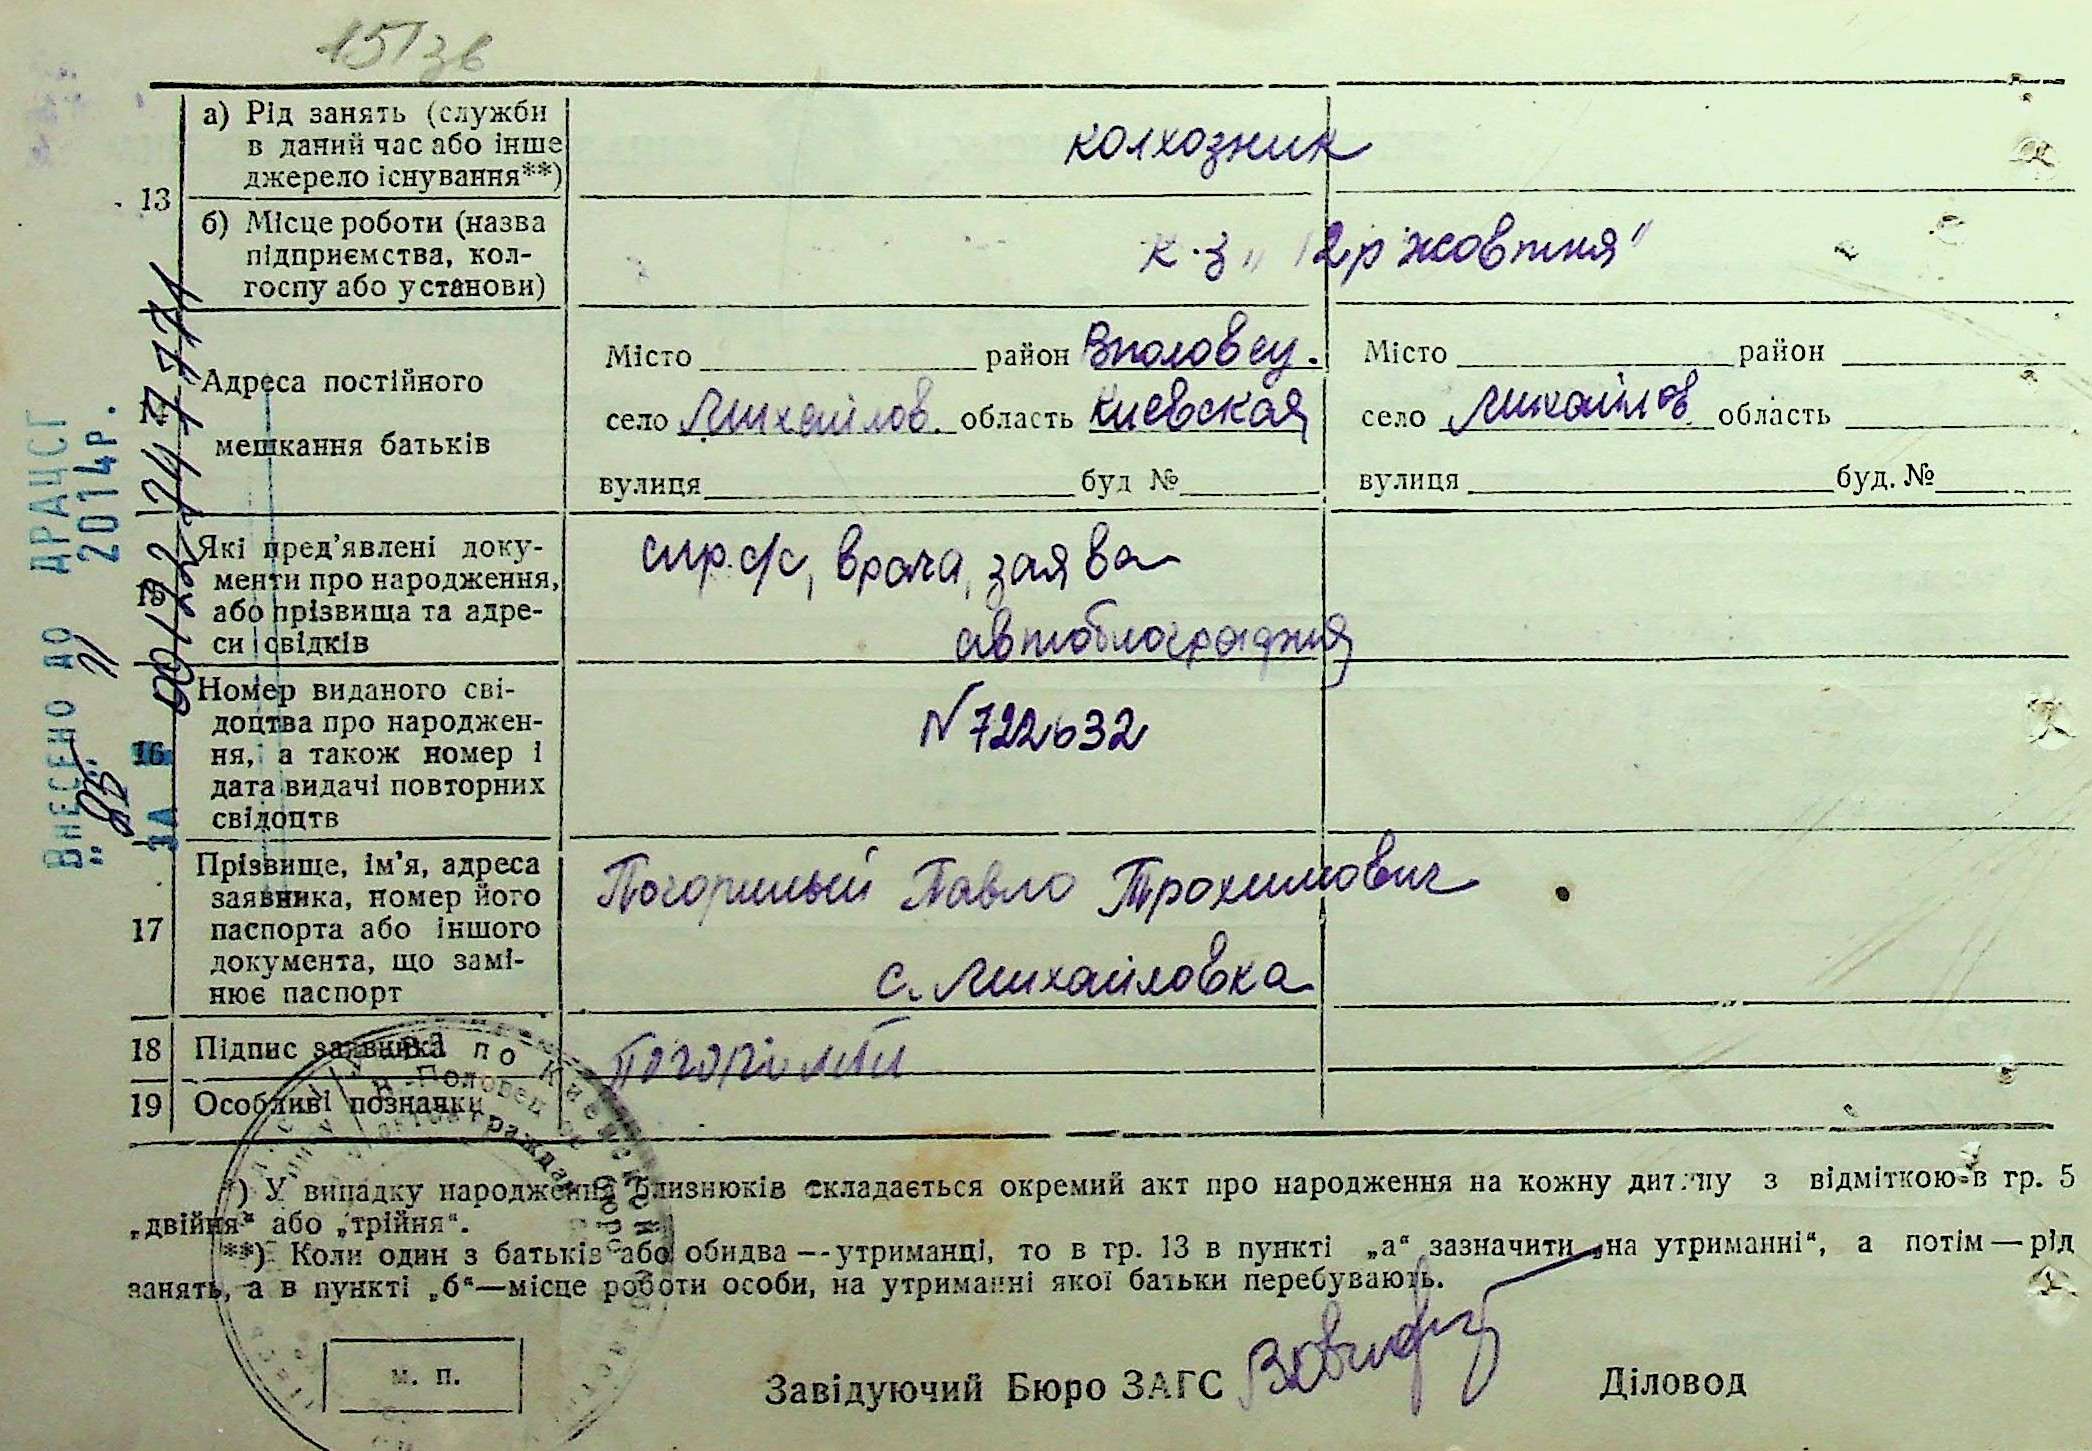 151 зв
13
а) Рід занять (служби
в даний час або інше
джерело існування**)
колхозник
б) Місце роботи (назва
підприємства, кол-
госпу або установи)
к-з „12 р жовтня"
14
Адреса постійного
мешкання батьків
Місто район Вполовец.
село Михайлов. область Киевская
вулиця буд №
Місто район
село Михайлов область
вулиця буд. №
15
Які пред'явлені доку-
менти про народження,
або прізвища та адре-
си свідків
спр. с/с, врача, заява
автобиография
16
Номер виданого сві-
доцтва про народжен-
ня, а також номер і
дата видачі повторних
свідоцтв
N 722632
17
Прізвище, ім'я, адреса
заявника, номер його
паспорта або іншого
документа, що замі-
нює паспорт
Павло Трохимович
с. Михайловка
18 Підпис заявника
19 Особливі познанки
*) У випадку народження близнюків складається окремий акт про народження на кожну дитину з відміткою в гр. 5
„двійня“ або „трійня“.
**) Коли один з батьків або обидва — утриманці, то в гр. 13 в пункті „а“ зазначити „на утриманні“, а потім — рід
занять, а в пункті „б“ — місце роботи особи, на утриманні якої батьки перебувають.
м. п.
Завідуючий Бюро ЗАГС
Діловод
Внесено до ДРАЦСГ
2014р.
ЗА